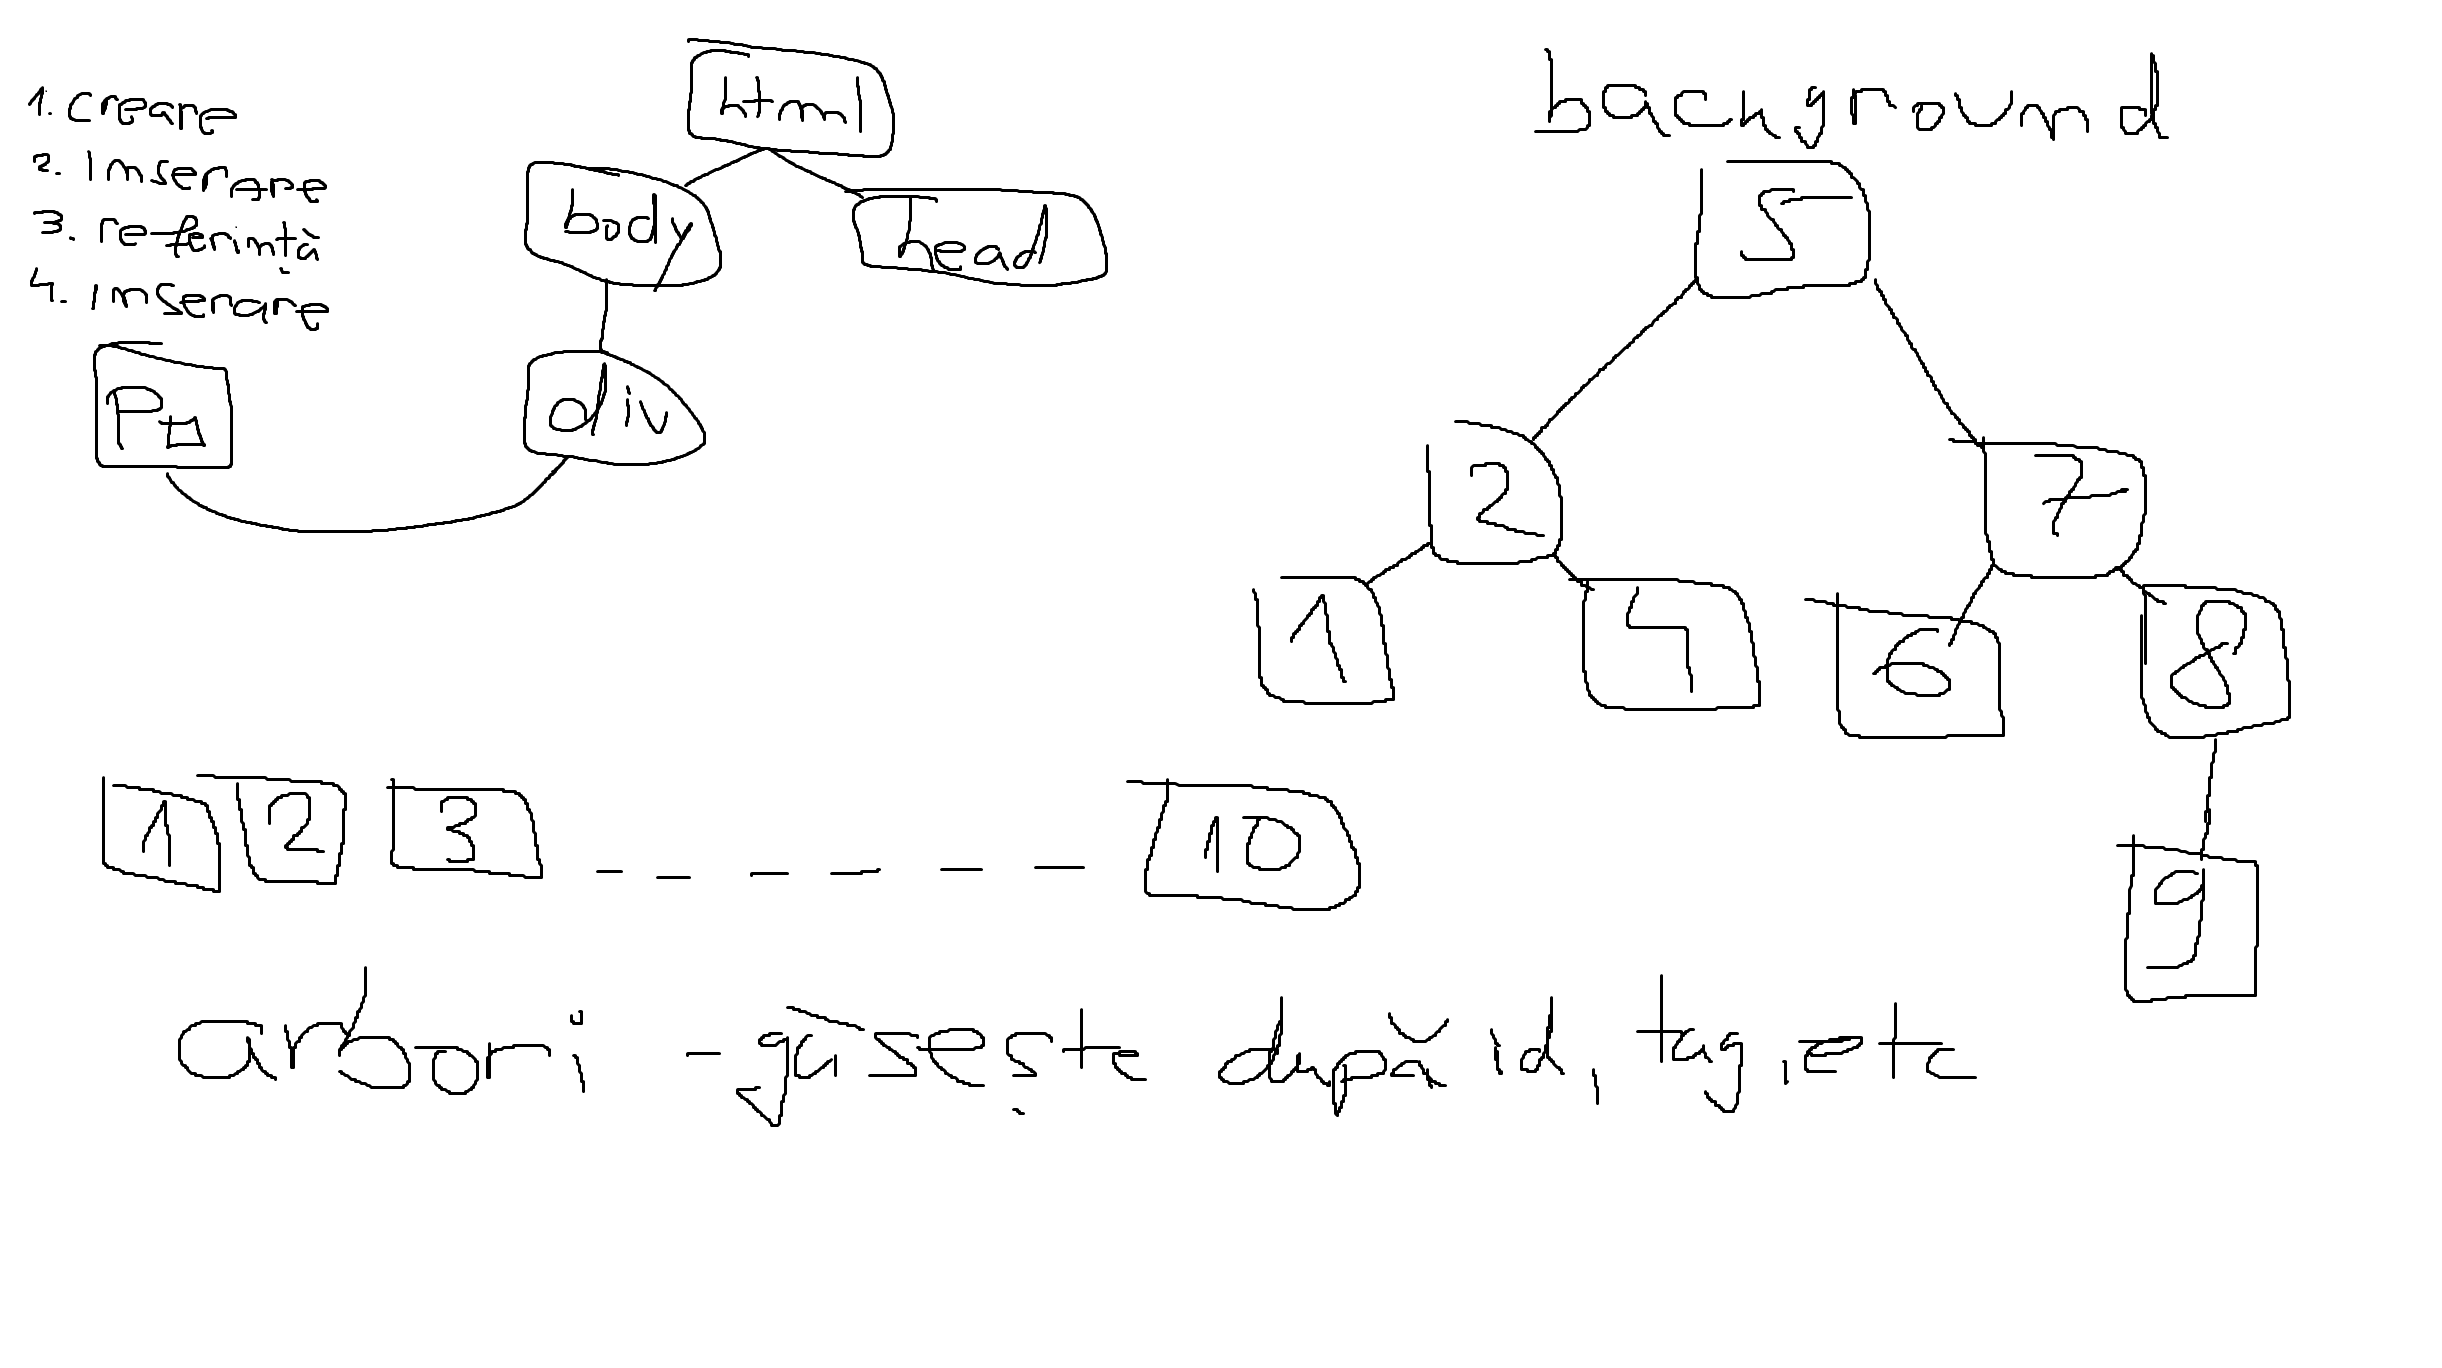 1. creare
2. inserare
3. referință
4. inserare
html
body
head
div
P
background
5
2
7
1
4
6
8
9
1
2
3
10
arbori - găsește după id, tag, etc